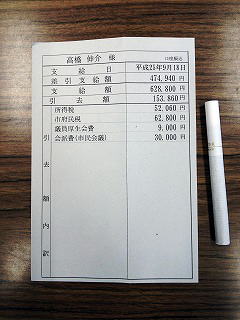 高橋 伸介 様 口座振込
支給日 平成25年9月18日
差引支給額 474,940円
支給額 628,800円
引去額 153,860円
引去額内訳
所得税 52,060円
市府民税 62,800円
議員厚生会費 9,000円
会派費(市民会議) 30,000円